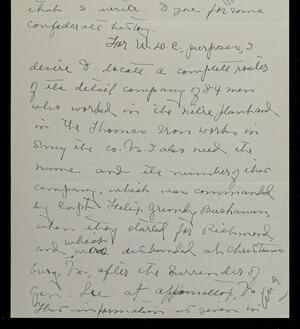 that I write to you for some
confederate history.
For U.D.C. purposes, I
desire to locate a complete roster
of the detail company of 84 men
who worked in the nitre plant and
in the Thomas Iron works in
Smyth co. Va. I also need the
name and the number of that
company, which was commanded
by Capt. Felix Grundy Buchanan,
when they started for Richmond,
and which was disbanded at Christians
burg, Va., after the surrender of
Gen. Lee at Appomattox, Va.
This information is given in